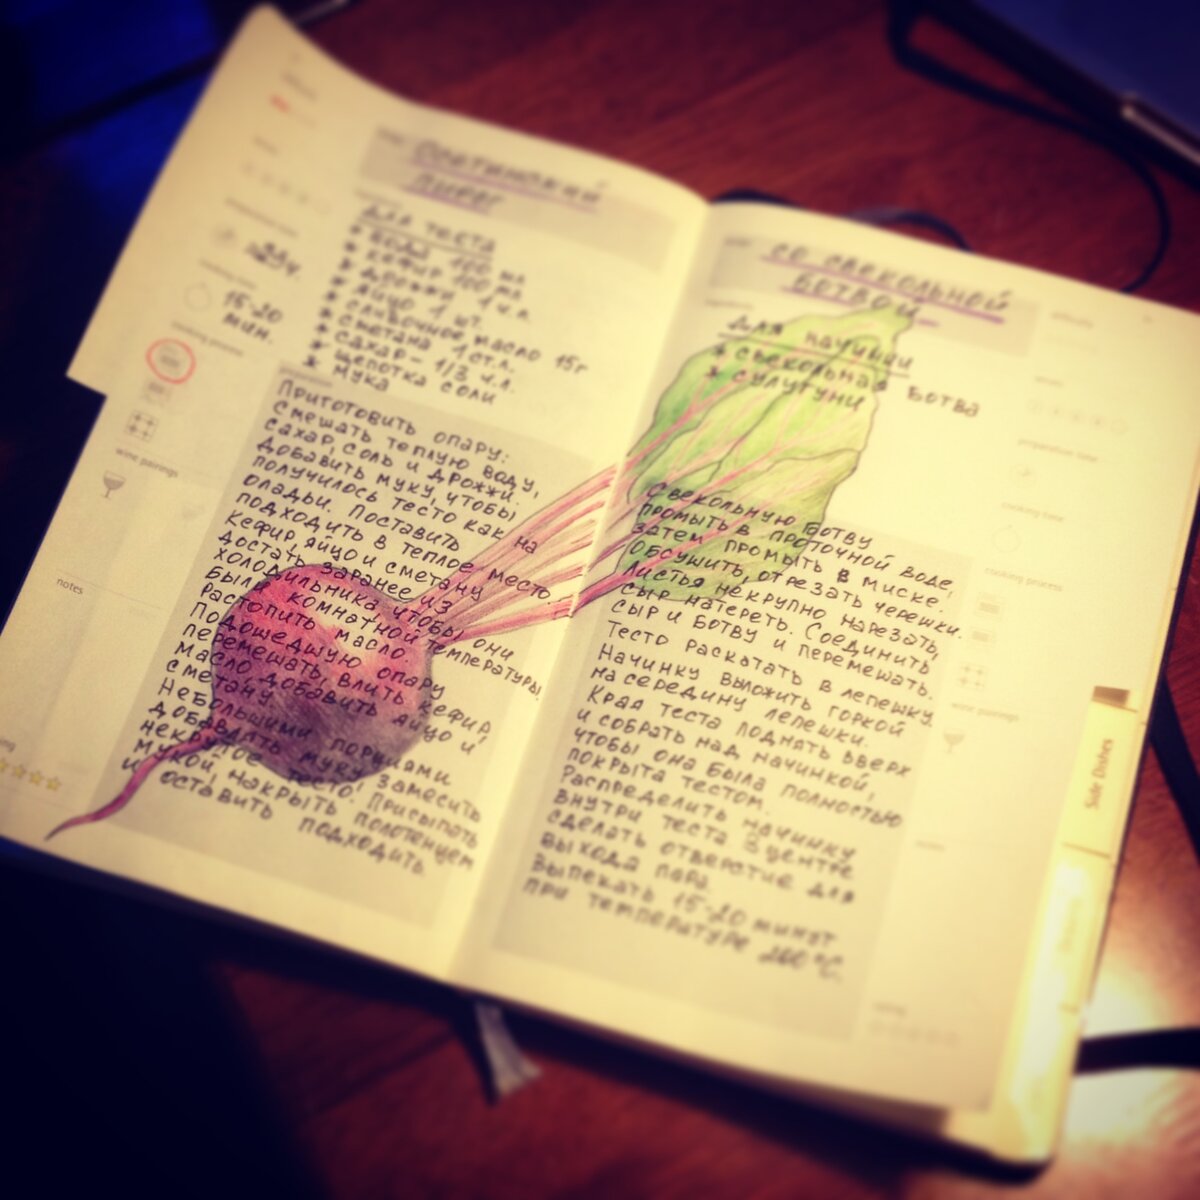 Осетинский
пирог
Для теста
* вода 100 мл
* кефир 100 мл
* дрожжи 1 ч.л.
* яйцо 1 шт.
* сливочное масло 15 г
* сметана 1 ст.л.
* сахар - 1/3 ч.л.
* щепотка соли
* мука
15-20
мин.
cooking process
wine pairings
notes
Приготовить опару:
смешать теплую воду,
сахар, соль и дрожжи.
Добавить муку, чтобы
получилось тесто как на
оладьи. Поставить
подходить в теплое место.
Кефир, яйцо и сметану
достать заранее из
холодильника, чтобы они
были комнатной температуры.
Растопить масло
Подошедшую опару
перемешать, влить кефир,
масло добавить яйцо и
сметану
Небольшими порциями
добавлять муку, замесить
некрутое тесто! Присыпать
мукой накрыть полотенцем
и оставить подходить.
со свекольной
ботвой
Для начинки
* свекольная ботва
* сулугуни
Свекольную ботву
промыть в проточной воде,
затем промыть в миске.
Обсушить, отрезать черешки.
Листья некрупно нарезать,
сыр натереть. Соединить
сыр и ботву и перемешать.
Тесто раскатать в лепешку
Начинку выложить горкой
на середину лепешки.
Края теста поднять вверх
и собрать над начинкой,
чтобы она была полностью
покрыта тестом.
Распределить начинку
внутри теста В центре
сделать отверстие для
выхода пара.
Выпекать 15-20 минут
при температуре °C.
preparation time
cooking time
cooking process
wine pairings
Side Dishes